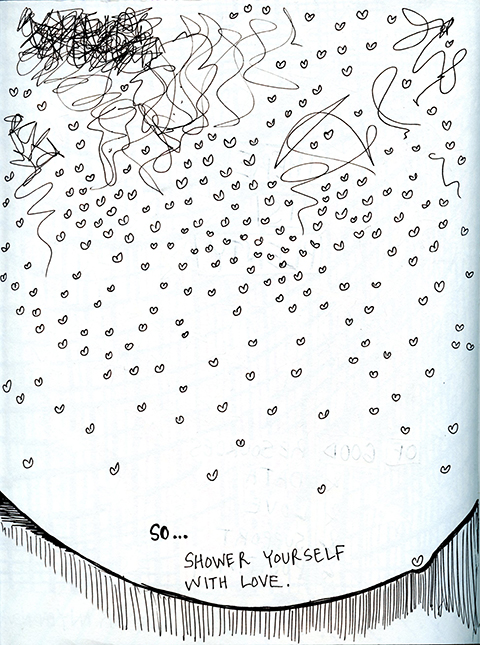 SO...
SHOWER YOURSELF
WITH LOVE.